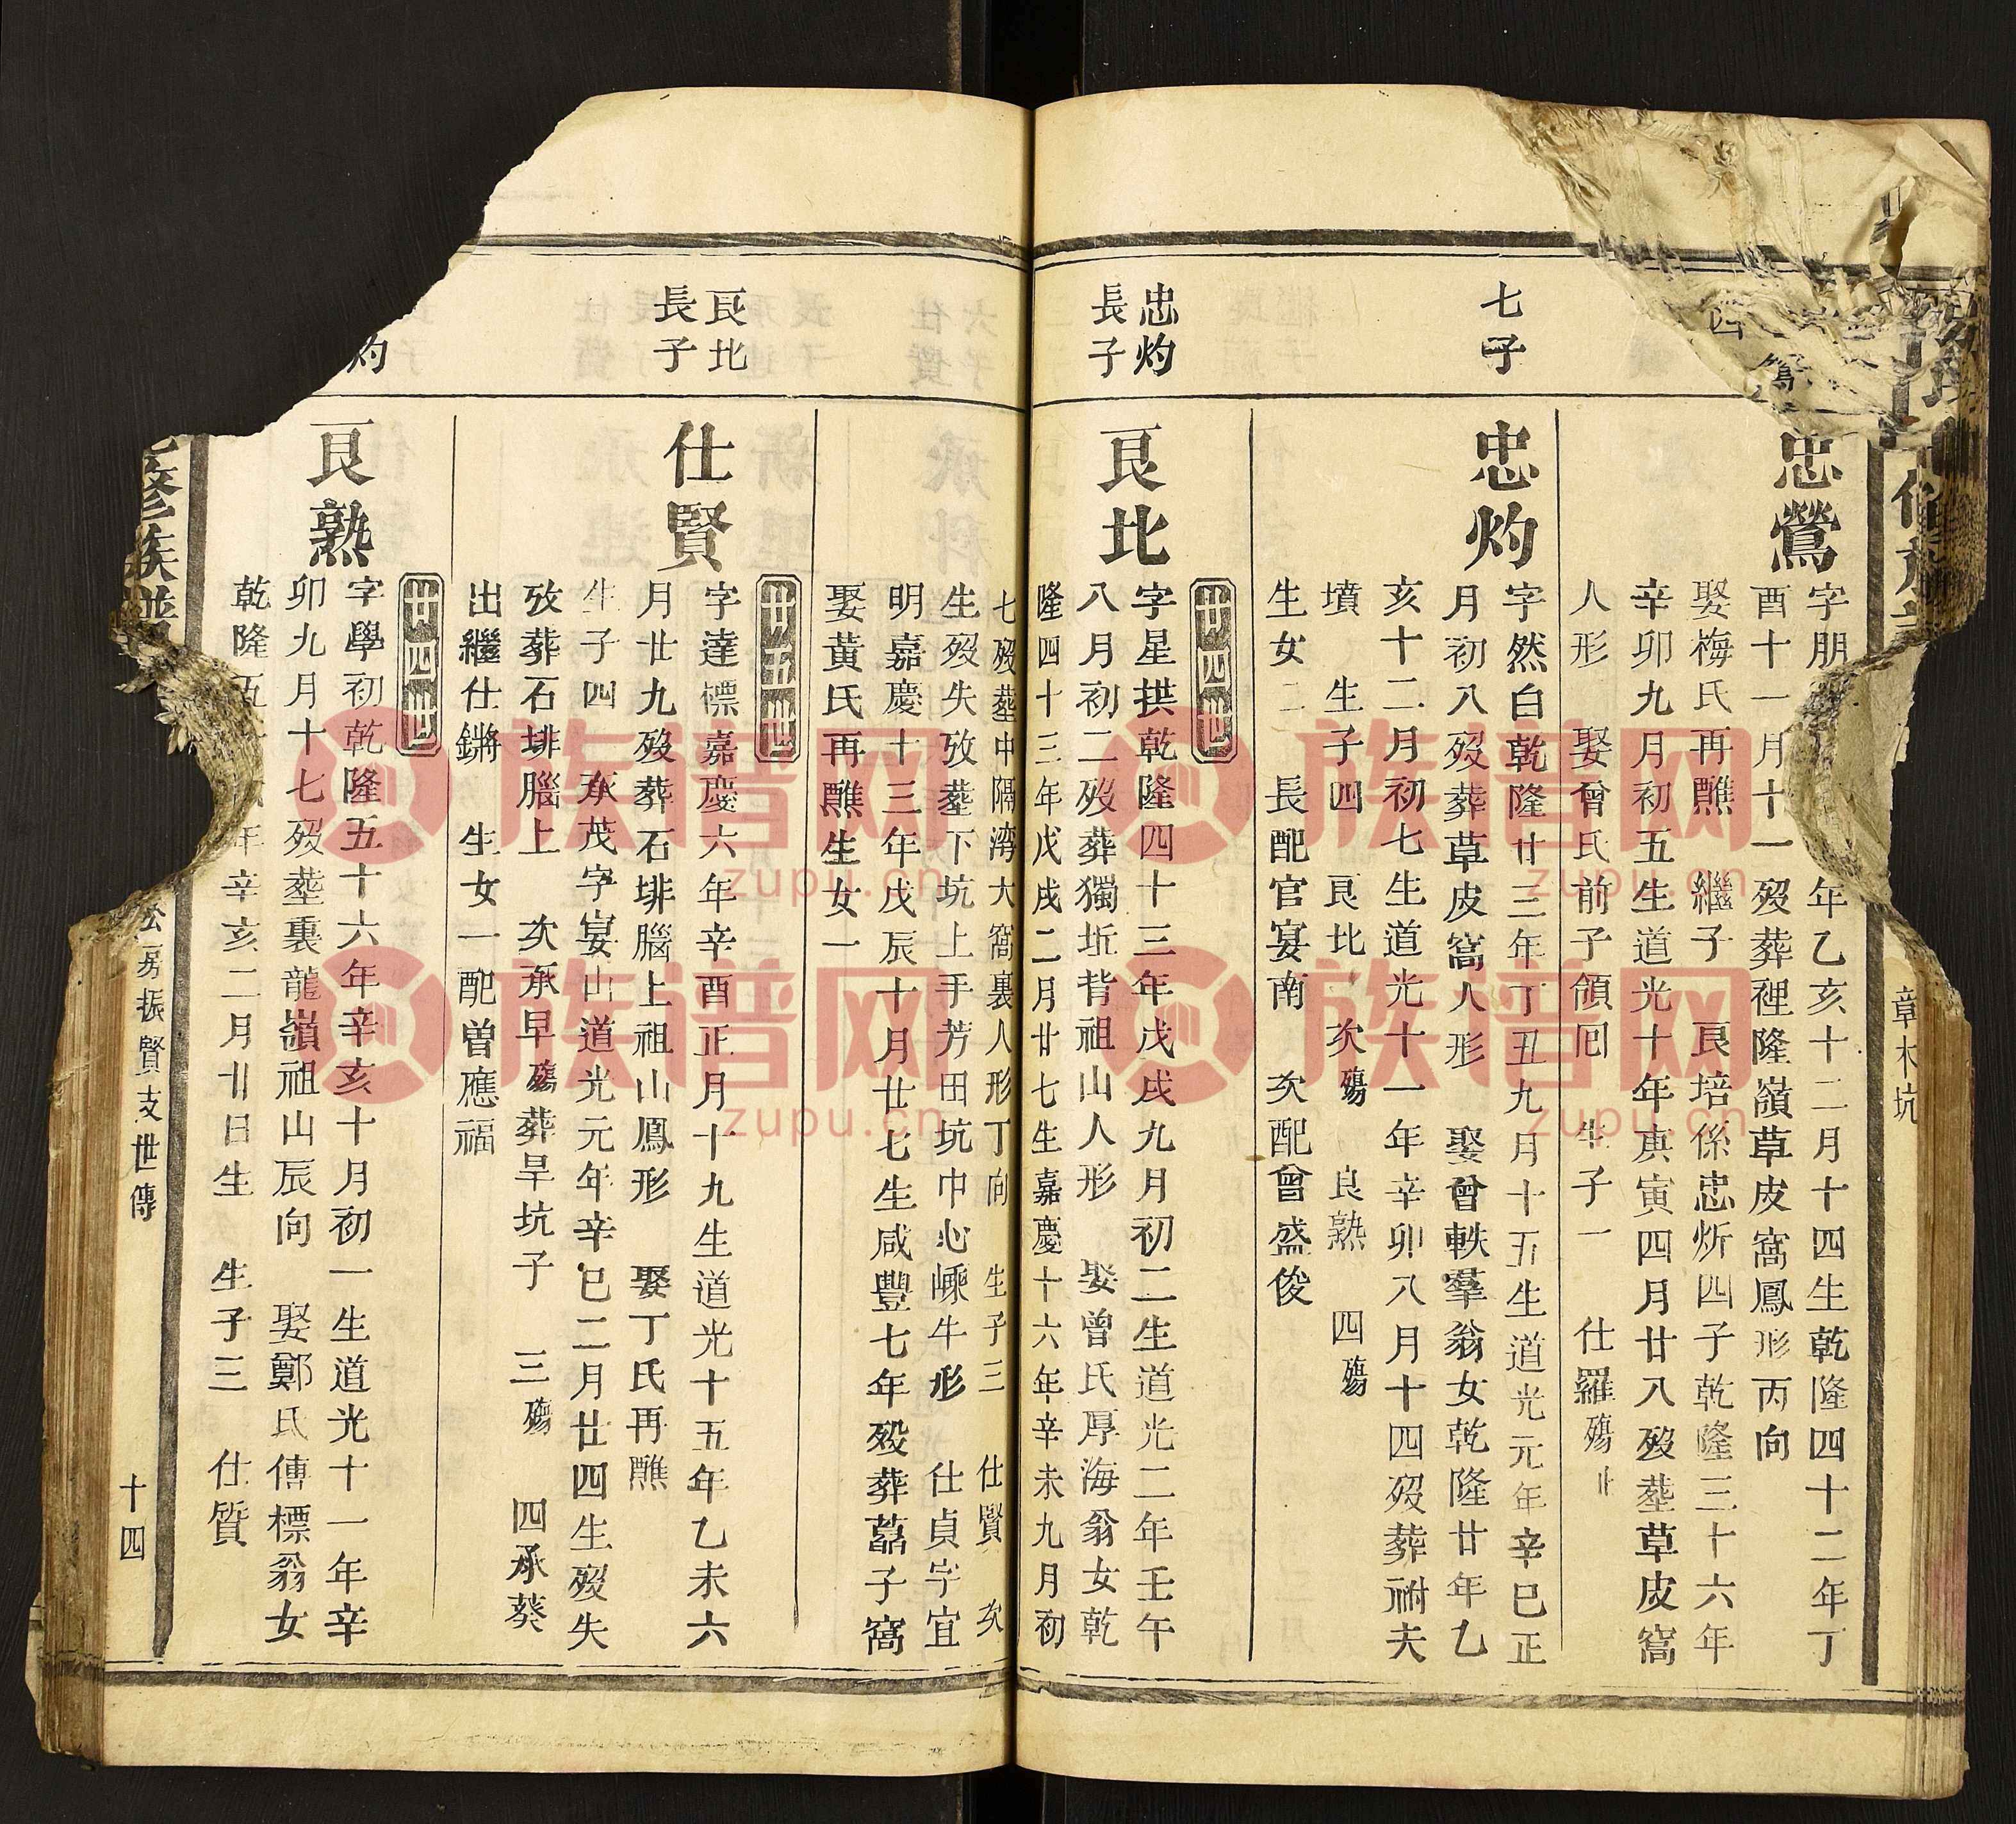 章木坑
忠鶯
字朋
年乙亥十二月十四生乾隆四十二年丁
酉十一月十一歿葬裡隆嶺草皮窩鳳形丙向
娶梅氏再醮 繼子 良培係忠炘四子乾隆三十六年
辛卯九月初五生道光十年庚寅四月廿八歿塟草皮窩
人形 娶曾氏前子領囘 生子一 仕羅殤止
七子
忠灼
字然白乾隆廿三年丁丑九月十五生道光元年辛巳正
月初八歿葬草皮窩人形 娶曾軼羣翁女乾隆廿年乙
亥十二月初七生道光十一年辛卯八月十四歿葬祔夫
墳 生子四 良北 次殤 良熟 四殤
生女二 長配官宴南 次配曾盛俊
廿四世
忠灼
長子
良北
字星拱乾隆四十三年戊戌九月初二生道光二年壬午
八月初二歿葬獨坵背祖山人形 娶曾氏厚海翁女乾
隆四十三年戊戌二月廿七生嘉慶十六年辛未九月初
七歿塟中隔湾大窩裏人形丁向 生子三 仕賢 次
生歿失攷塟下坑上手芳田坑巾心嵊牛形 仕貞字宜
明嘉慶十三年戊辰十月廿七生咸豐七年歿葬藠子窩
娶黃氏再醮生女一
廿五世
良北
長子
仕賢
字達標嘉慶六年辛酉正月十九生道光十五年乙未六
月廿九歿葬石排腦上祖山鳳形 娶丁氏再醮
生子四 承茂字宴山道光元年辛巳二月廿四生歿失
攷葬石排腦上 次承早殤葬旱坑子 三殤 四承葵
出繼仕鏘 生女一配曾應福
廿四世
灼
良熟
字學初乾隆五十六年辛亥十月初一生道光十一年辛
卯九月十七歿塟裏龍嶺祖山辰向 娶鄭氏傳標翁女
乾隆五十六年辛亥二月廿日生 生子三 仕質
修族譜
房振賢支世傳
十四
族谱网
zupu.cn
族谱网
zupu.cn
族谱网
zupu.cn
族谱网
zupu.cn